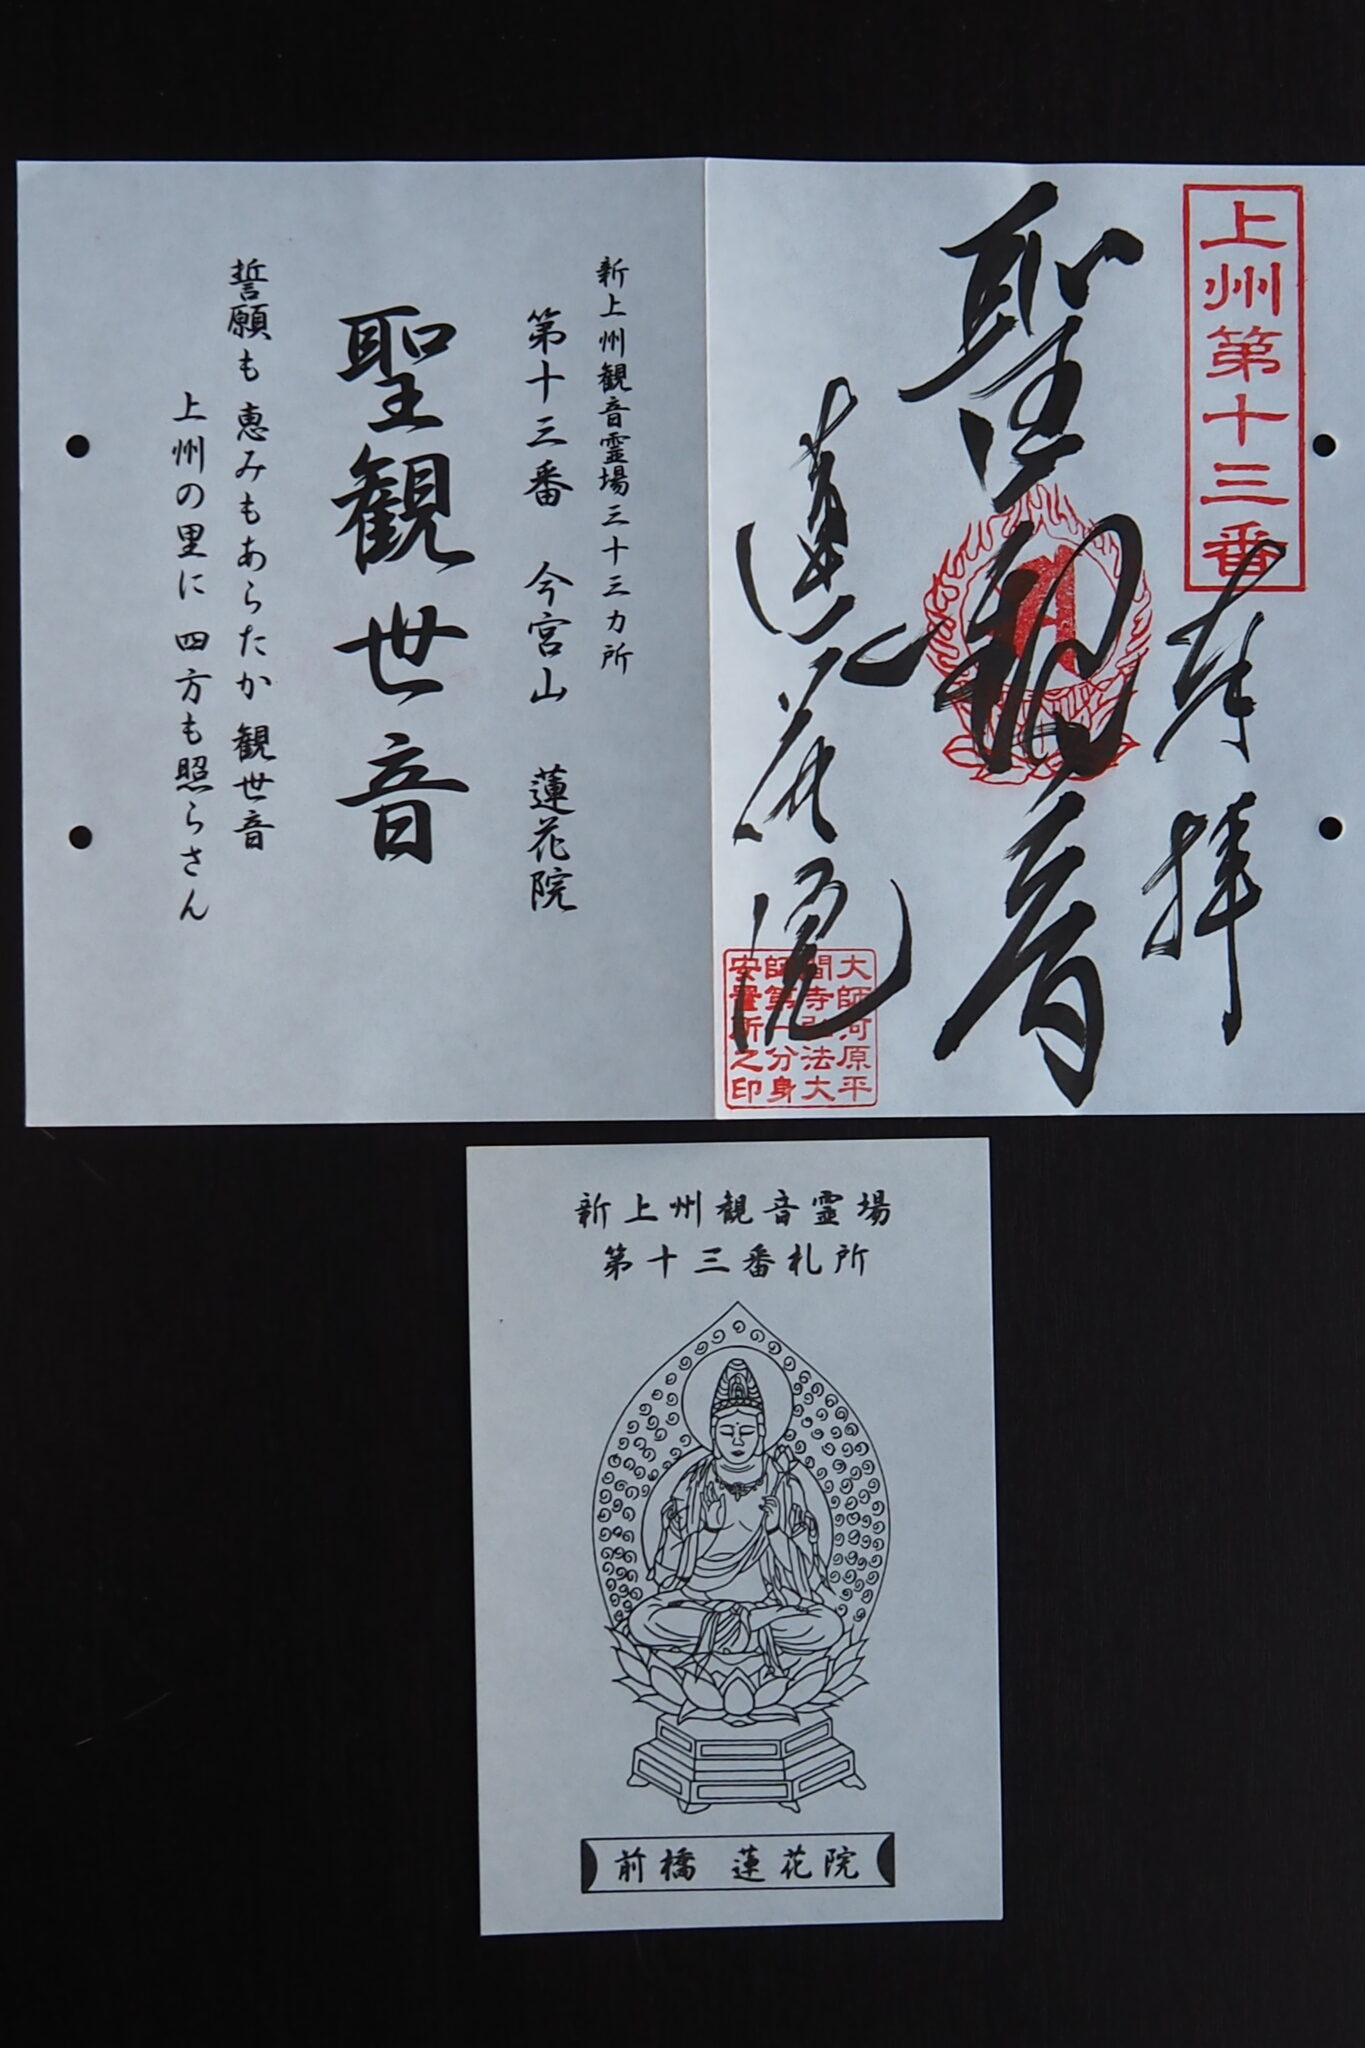 上州第十三番
奉拝
聖観音
蓮花院
大師河原平
間寺弘法大
師第一分身
安置所之印
新上州観音霊場三十三カ所
第十三番 今宮山 蓮花院
聖観世音
誓願も 恵みもあらたか 観世音
上州の里に 四方も照らさん
新上州観音霊場
第十三番札所
前橋 蓮花院